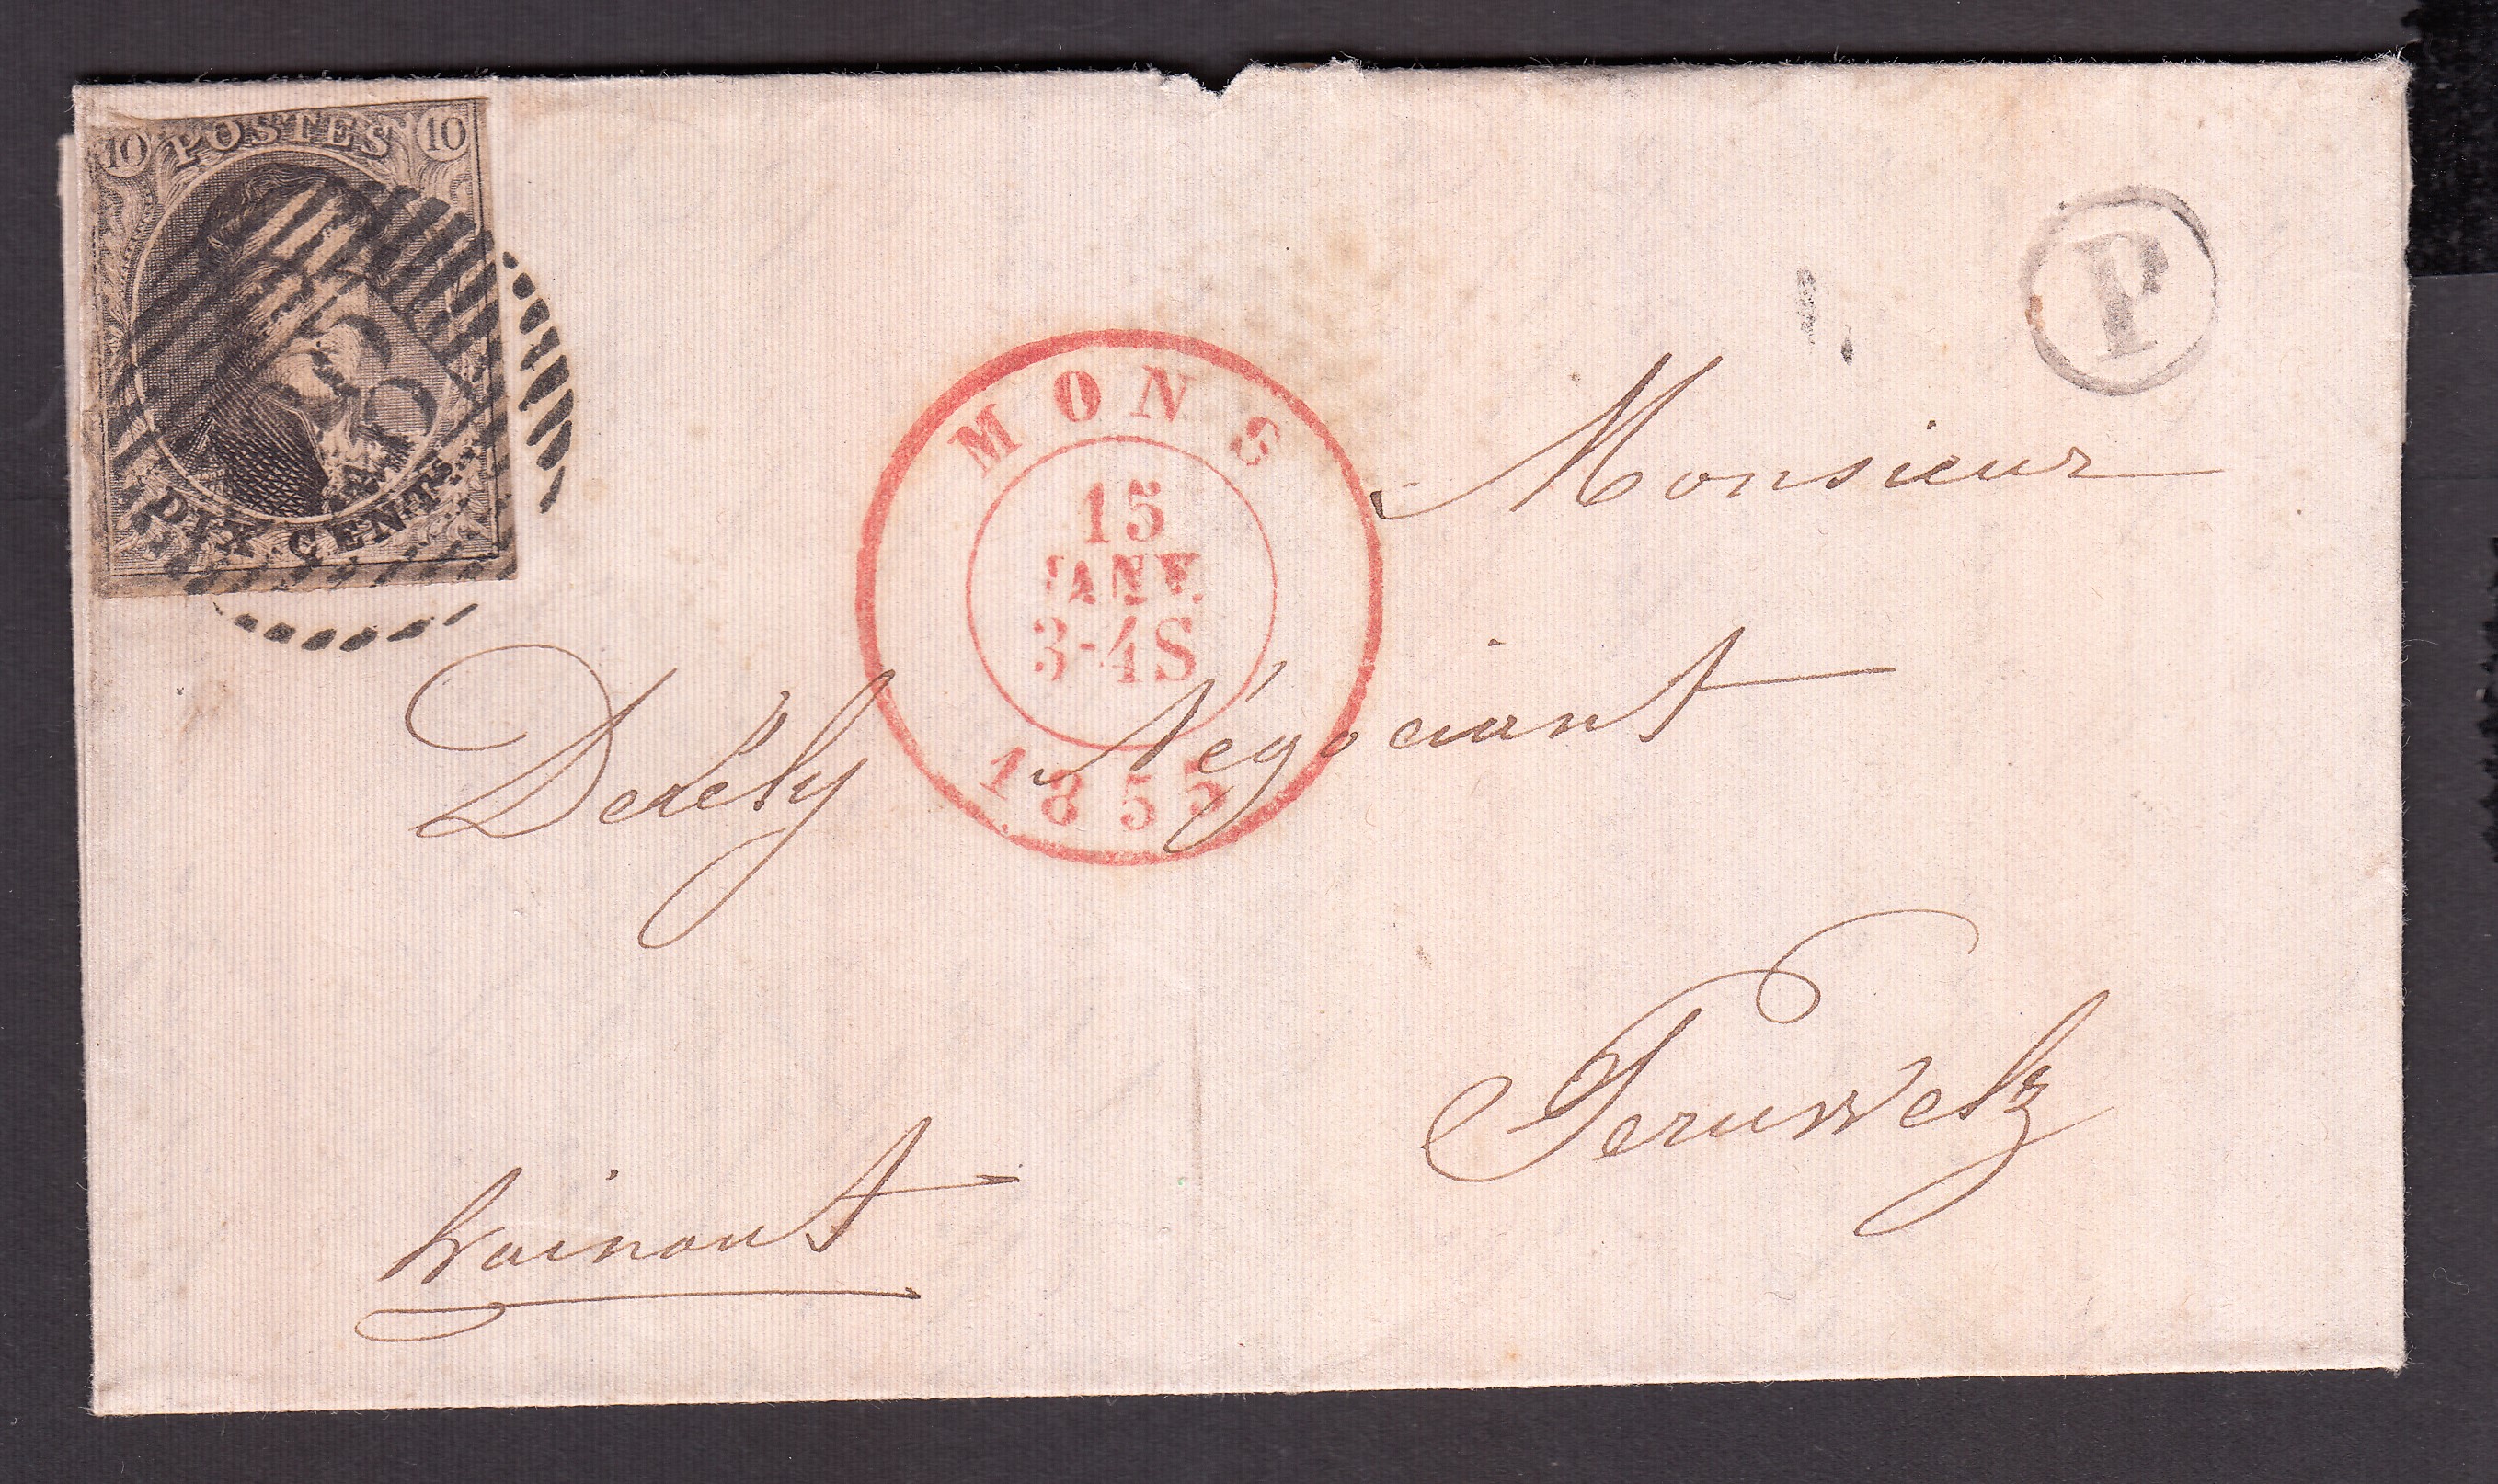 10 POSTES 10
DIX CENTS
MONS
15
JANV.
3-4S
1855
P
Monsieur
Négociant
Peruwelz
hainaut